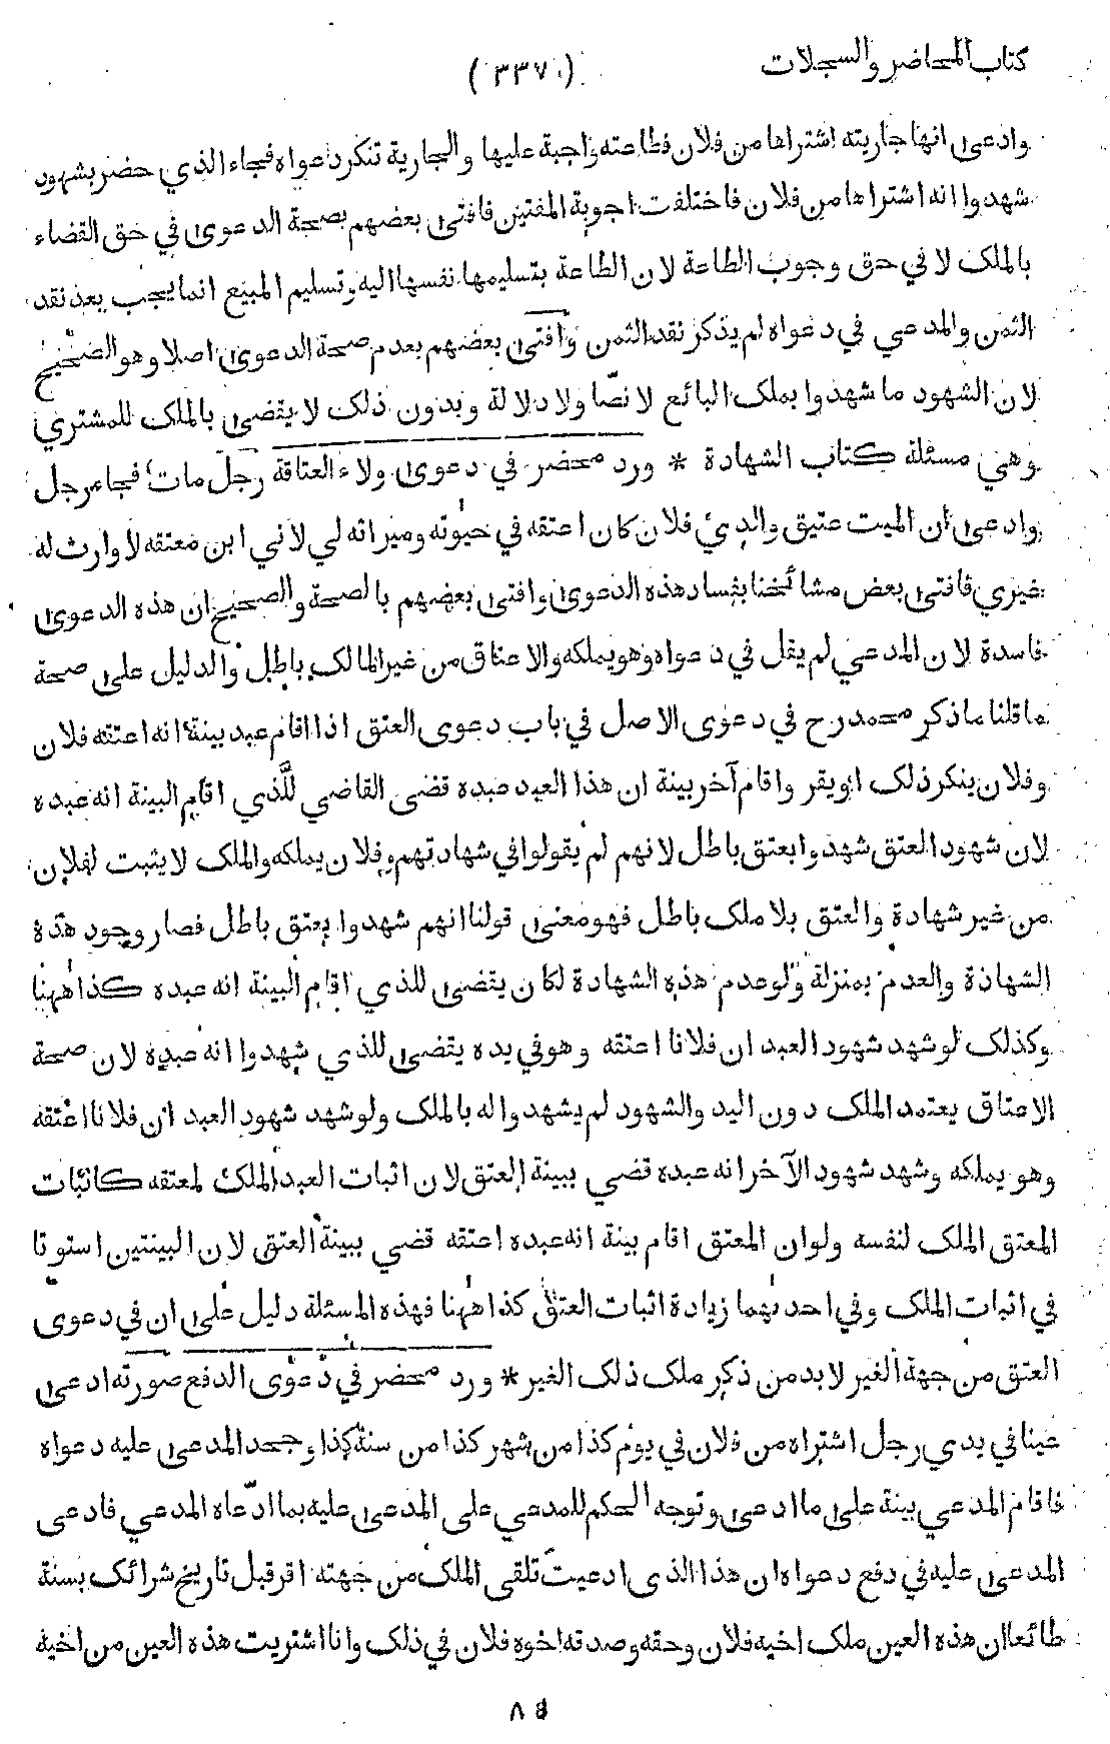 كتاب المحاضر والسجلات
(٣٣٧)
وادعى انها جاريته اشتراها من فلان فطاعته واجبة عليها والجارية تنكر دعواه فجاء الذي حضر بشهود
شهدوا انه اشتراها من فلان فاختلفت اجوبة المفتين فافتى بعضهم بصحة الدعوى في حق القضاء
بالملك لا في حق وجوب الطاعة لان الطاعة بتسليمها نفسها اليه وتسليم المبيع انما يجب بعد نقد
الثمن والمدعي في دعواه لم يذكر نقد الثمن وافتى بعضهم بعدم صحة الدعوى اصلا وهو الصحيح
لان الشهود ما شهدوا بملك البائع لا نصّا ولا دلالة وبدون ذلك لا يقضى بالملك للمشتري
وهي مسئلة كتاب الشهادة * ورد محضر في دعوى ولاء العتاقة رجل مات فجاء رجل
وادعى ان الميت عتيق والدي فلان كان اعتقه في حيوته وميراثه لي لاني ابن معتقه لا وارث له
غيري فافتى بعض مشائخنا بفساد هذه الدعوى وافتى بعضهم بالصحة والصحيح ان هذه الدعوى
فاسدة لان المدعي لم يقل في دعواه وهو يملكه والاعتاق من غير المالك باطل والدليل على صحة
ما قلنا ما ذكر محمد رح في دعوى الاصل في باب دعوى العتق اذا اقام عبد بينة انه اعتقه فلان
وفلان ينكر ذلك او يقر واقام آخر بينة ان هذا العبد عبده قضى القاضي للّذي اقام البينة انه عبده
لان شهود العتق شهدوا بعتق باطل لانهم لم يقولوا في شهادتهم وفلان يملكه والملك لا يثبت لفلان
من غير شهادة والعتق بلا ملك باطل فهو معنى قولنا انهم شهدوا بعتق باطل فصار وجود هذه
الشهادة والعدم بمنزلة ولو عدم هذه الشهادة لكان يقضى للذي اقام البينة انه عبده كذا ههنا
وكذلك لو شهد شهود العبد ان فلانا اعتقه وهو في يده يقضى للذي شهدوا انه عبده لان صحة
الاعتاق يعتمد الملك دون اليد والشهود لم يشهدوا له بالملك ولو شهد شهود العبد ان فلانا اعتقه
وهو يملكه وشهد شهود الآخر انه عبده قضي ببينة العتق لان اثبات العبد الملك لمعتقه كاثبات
المعتق الملك لنفسه ولو ان المعتق اقام بينة انه عبده اعتقه قضي ببينة العتق لان البينتين استوتا
في اثبات الملك وفي احدىهما زيادة اثبات العتق كذا ههنا فهذه المسئلة دليل على ان في دعوى
العتق من جهة الغير لا بد من ذكر ملك ذلك الغير * ورد محضر في دعوى الدفع صورته ادعى
عينا في يدي رجل اشتراه من فلان في يوم كذا من شهر كذا من سنة كذا وجحد المدعى عليه دعواه
فاقام المدعي بينة على ما ادعى وتوجه الحكم للمدعي على المدعى عليه بما ادّعاه المدعي فادعى
المدعى عليه في دفع دعواه ان هذا الذى ادعيت تلقى الملك من جهته اقر قبل تاريخ شرائك بسنة
طائعا ان هذه العين ملك اخيه فلان وحقه وصدقه اخوه فلان في ذلك وانا اشتريت هذه العين من اخيه